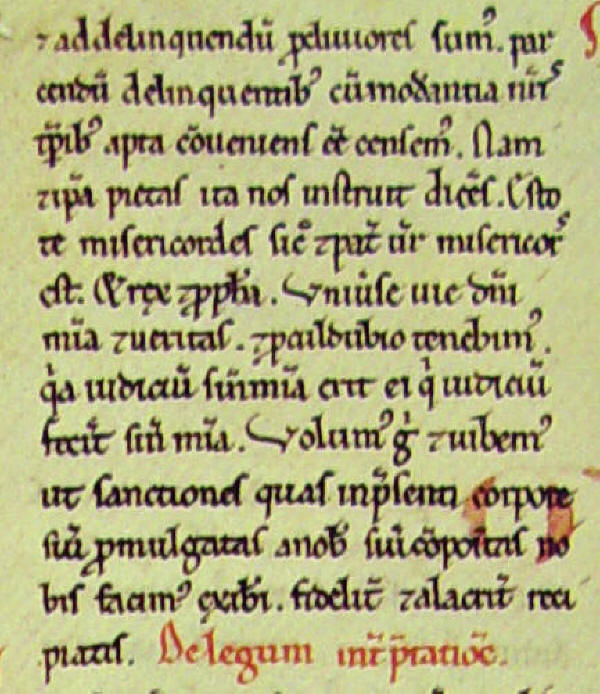 ⁊ addelinquendū ꝓcliuiores sumꝰ. par
cendū delinquentibꝰ cū moderantia nr̄is
tēporibꝰ apta cōueniens ēē censemꝰ. Nam
⁊ ip̄a pietas ita nos instruit dicēs. Esto
te misericordes sic̄ ⁊ pat̄ ur̄ misericors
est. Et rex ⁊ ꝓph̄a. Vniūse uie dn̄i
mīa ⁊ ueritas. ⁊ ꝓculdubio tenebimꝰ.
qͥa iudiciū sin̄ mīa erit ei qͥ iudiciū
fecīt sin̄ mīa. Volumꝰ gͥ ⁊ iubemꝰ
ut sanctiones quas inp̄senti corpore
siū ꝓmulgatas anob̄ siū cōpoītas no
bis facimꝰ exib̄i. fidelit̄ ⁊ alacrit̄ reci
piatis. De legum int̄p̄tatiōē.